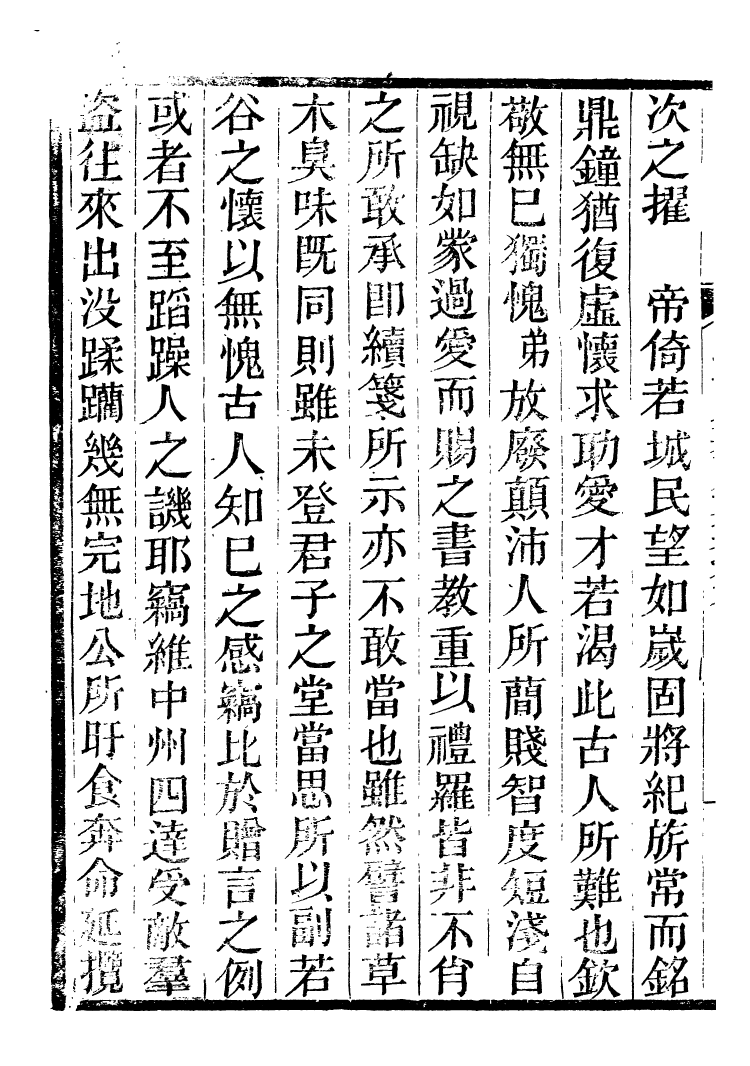 次之擢　帝倚若城民望如嵗固將紀旂常而銘
鼎鐘猶復虛懷求助愛才若渴此古人所難也欽
敬無已獨愧弟放廢顛沛人所蕳賤智度短淺自
視缺如蒙過愛而賜之書教重以禮羅皆非不肖
之所敢承即續箋所示亦不敢當也雖然譬諸草
木臭味既同則雖未登君子之堂當思所以副若
谷之懷以無愧古人知已之感竊比於贈言之例
或者不至蹈躁人之譏耶竊維中州四達受敵羣
盜往來出没蹂躪幾無完地公所旰食奔命延攬